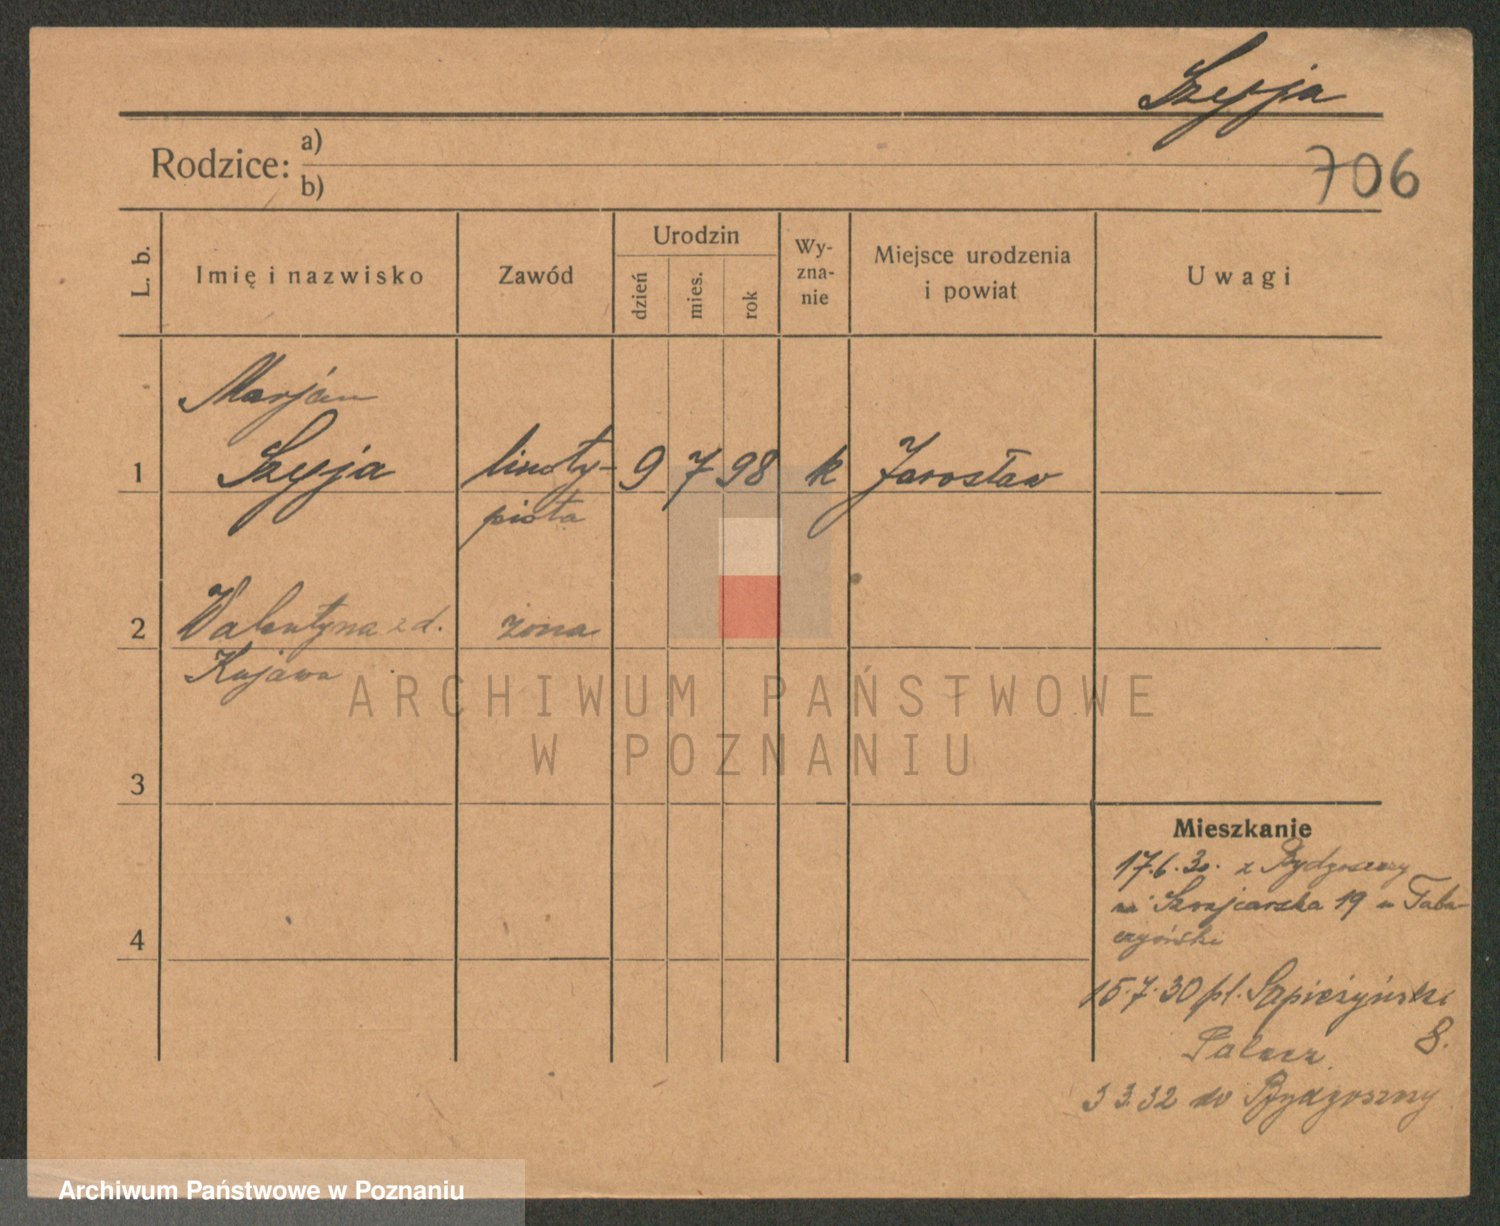 Szyja
706
Rodzice: a)
b)
L. b.
Imię i nazwisko
Zawód
Urodzin
dzień
mies.
rok
Wy-
zna-
nie
Miejsce urodzenia
i powiat
Uwagi
Marjan
1 Szyja linoty- 9 7 98 k Jarosław
pista
2 Walentyna z d. żona
Kujawa
3
4
Mieszkanie
17.6.30. z Bydgoszczy
na 19 u
15.7.30 pl. Sapieżyński
8.
3 3.32 do Bydgoszczy
ARCHIWUM PAŃSTWOWE
W POZNANIU
Archiwum Państwowe w Poznaniu